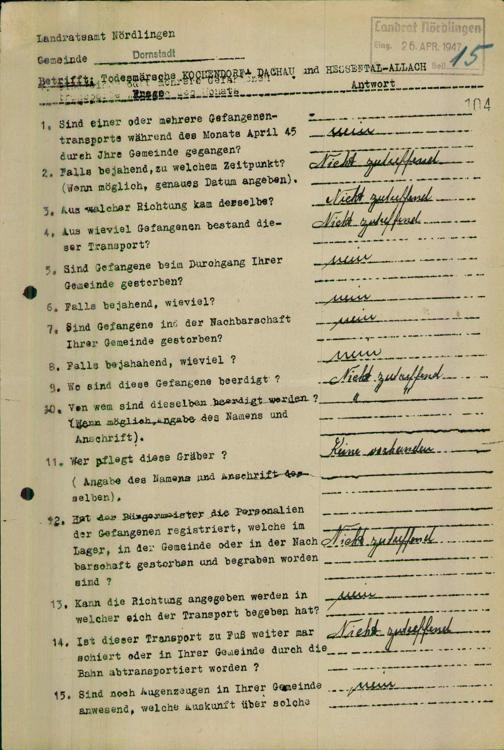 Landratsamt Nördlingen
Landrat Nördlingen
Eing. 26. APR. 1947
Beil. 15
Gemeinde Dornstadt
Betrifft: Todesmärsche KOCHENDORF DACHAU und HESSENTAL-ALLACH
Antwort
104
1. Sind einer oder mehrere Gefangenen- nein
transporte während des Monats April 45
durch Jhre Gemeinde gegangen?
2. Falls bejahend, zu welchem Zeitpunkt? Nicht zutreffend
(Wenn möglich, genaues Datum angeben).
3. Aus welcher Richtung kam derselbe? Nicht zutreffend
4. Aus wieviel Gefangenen bestand die- Nicht zutreffend
ser Transport?
5. Sind Gefangene beim Durchgang Ihrer nein
Gemeinde gestorben?
6. Falls bejahend, wieviel? nein
7. Sind Gefangene in der Nachbarschaft nein
Ihrer Gemeinde gestorben?
8. Falls bejahahend, wieviel ? nein
9. Wo sind diese Gefangene beerdigt ? Nicht zutreffend
10. Von wem sind dieselben beerdigt worden ? "
(Wenn möglich, Angabe des Namens und
Anschrift).
11. Wer pflegt diese Gräber ? Keine vorhanden
( Angabe des Namens und Anschrift des-
selben).
12. Hat der Bürgermeister die Personalien
der Gefangenen registriert, welche im
Lager, in der Gemeinde oder in der Nach Nicht zutreffend
barschaft gestorben und begraben worden
sind ?
13. Kann die Richtung angegeben werden in nein
welcher sich der Transport begeben hat?
14. Ist dieser Transport zu Fuß weiter mar Nicht zutreffend
schiert oder in Ihrer Gemeinde durch die
Bahn abtransportiert worden ?
15. Sind noch Augenzeugen in Ihrer Gemeinde nein
anwesend, welche Auskunft über solche